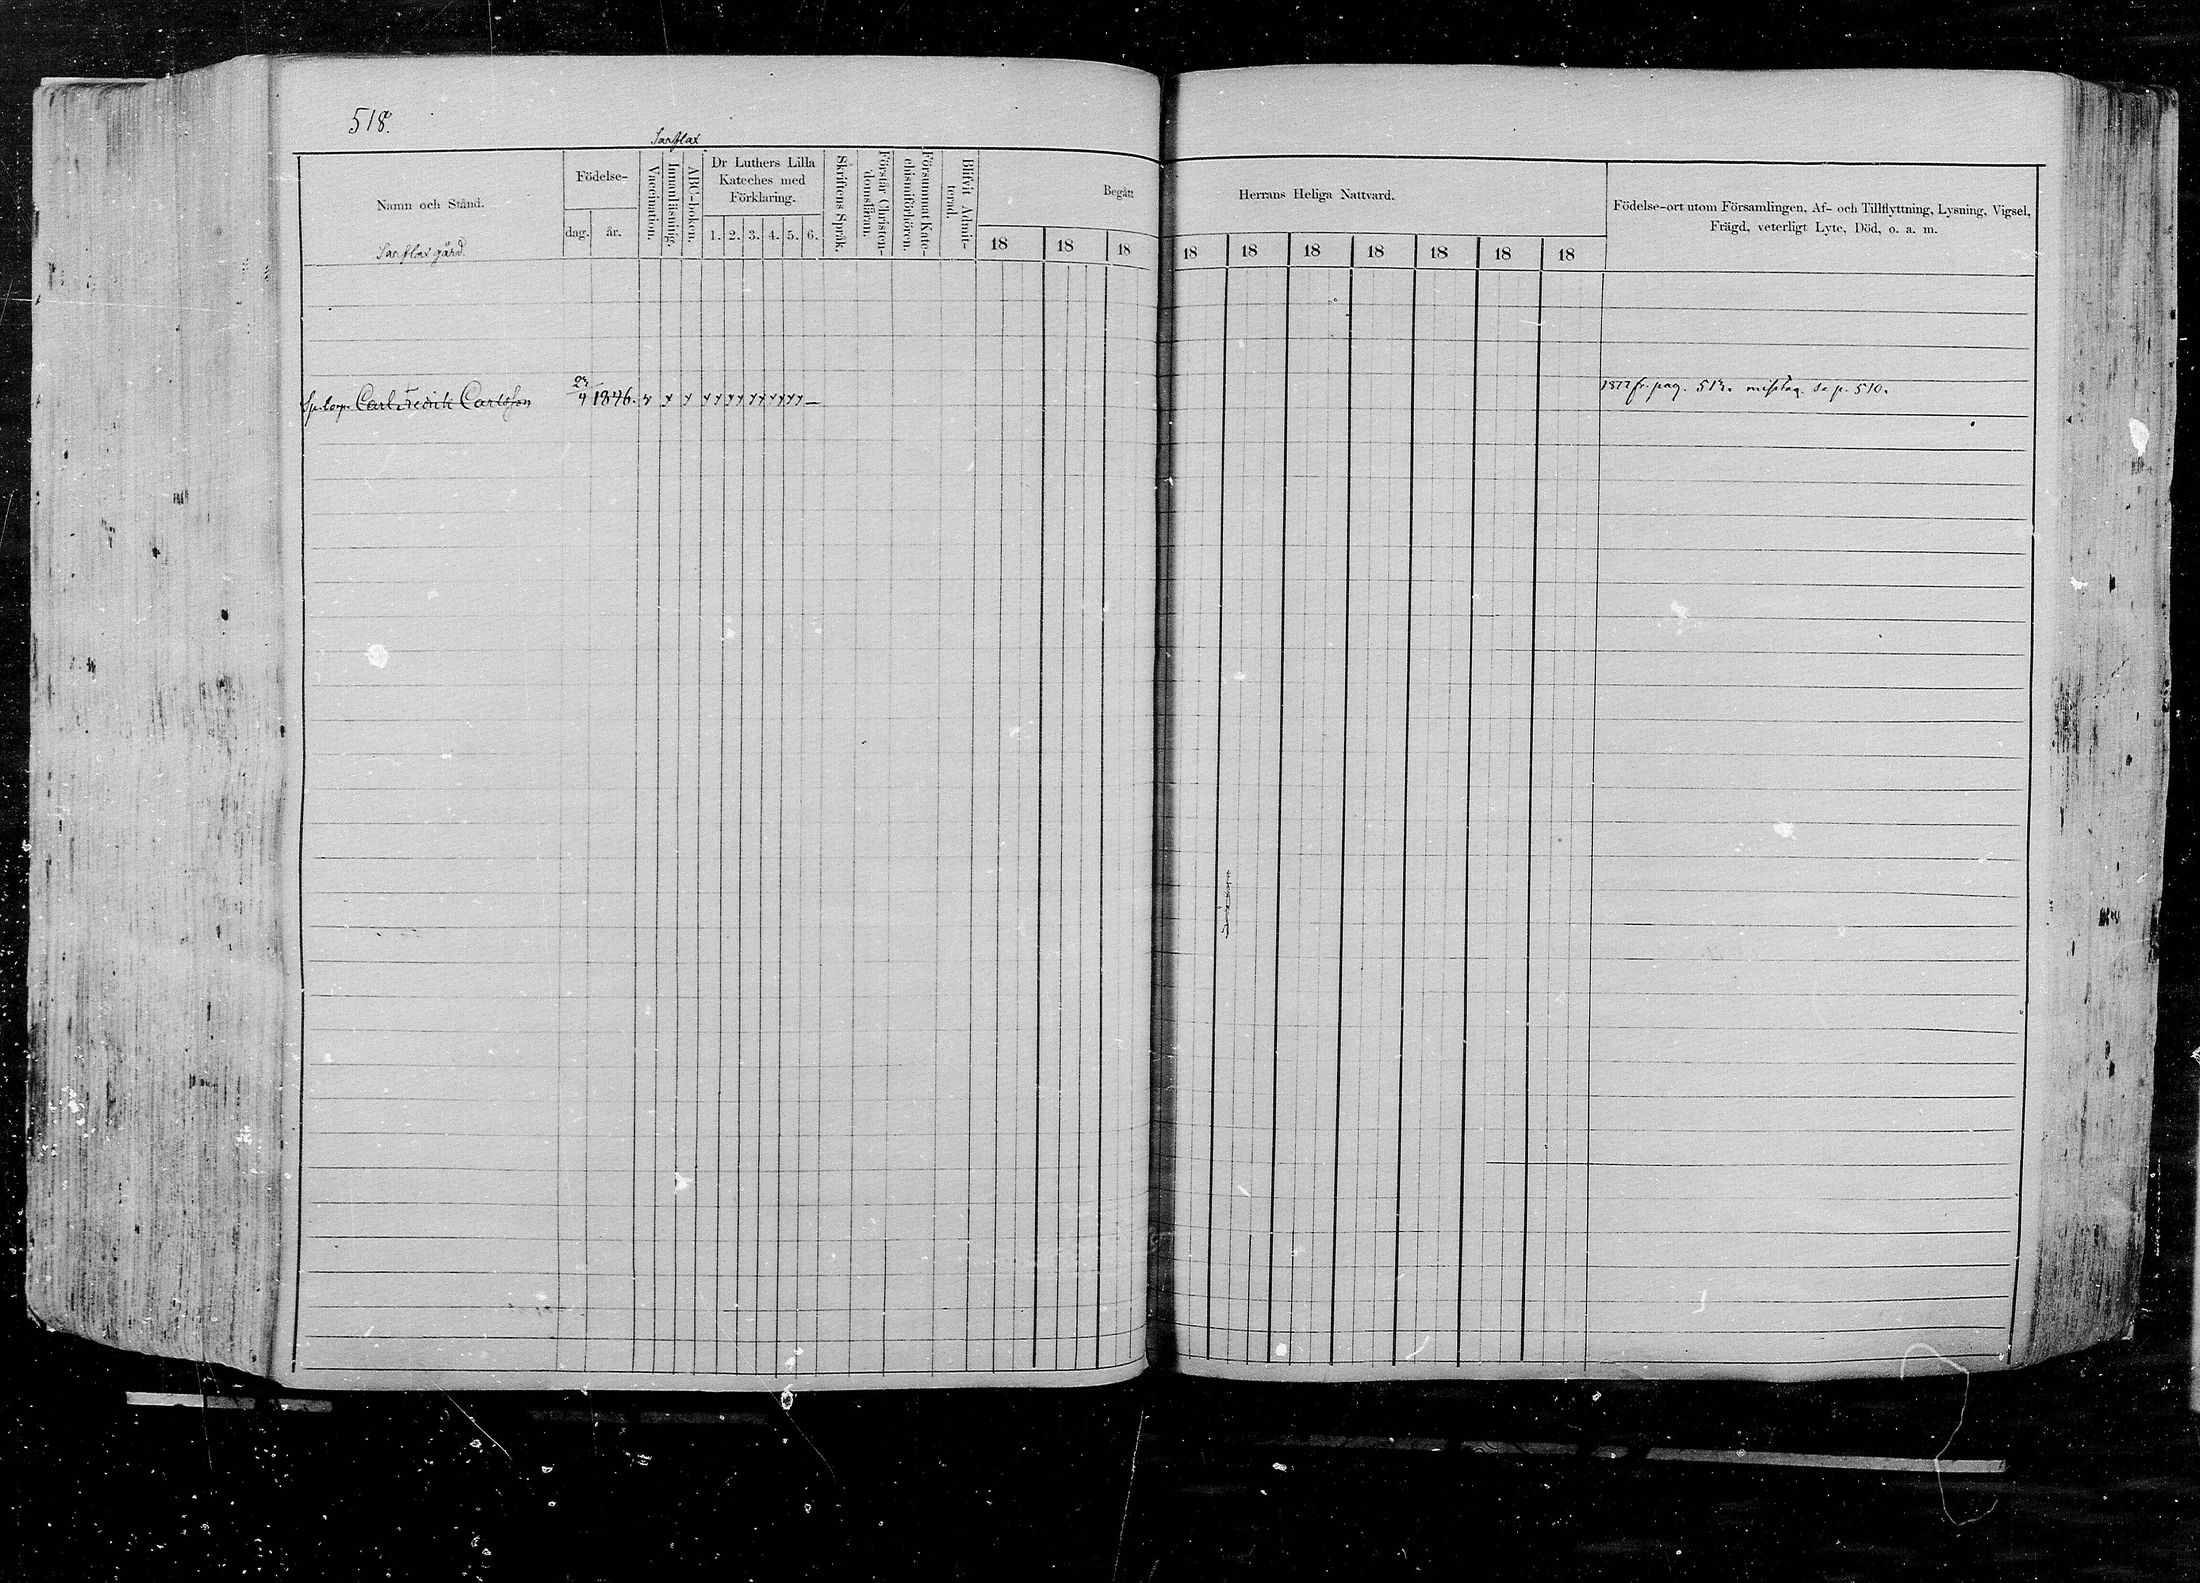 518.
Sarflax
Namn och Stånd.
Sarflax gård.
Födelse-
dag.
år.
Vaccination.
Innanläsning.
ABC-boken.
Dr Luthers Lilla
Kateches med
Förklaring.
1. 2. 3. 4. 5. 6.
Skriftens Språk.
Förstår Christen-
domsläran.
Försummat Kate-
chismiförhören.
Blifvit Admit-
terad.
Begått
18 18 18
Herrans Heliga Nattvard.
18 18 18 18 18 18 18
Födelse-ort utom Församlingen, Af- och Tillflyttning, Lysning, Vigsel,
Frägd, veterligt Lyte, Död, o. a. m.
Carl Fredrik Carlsson
1846.
1877 fr. pag. 512. misstag. se p. 510.